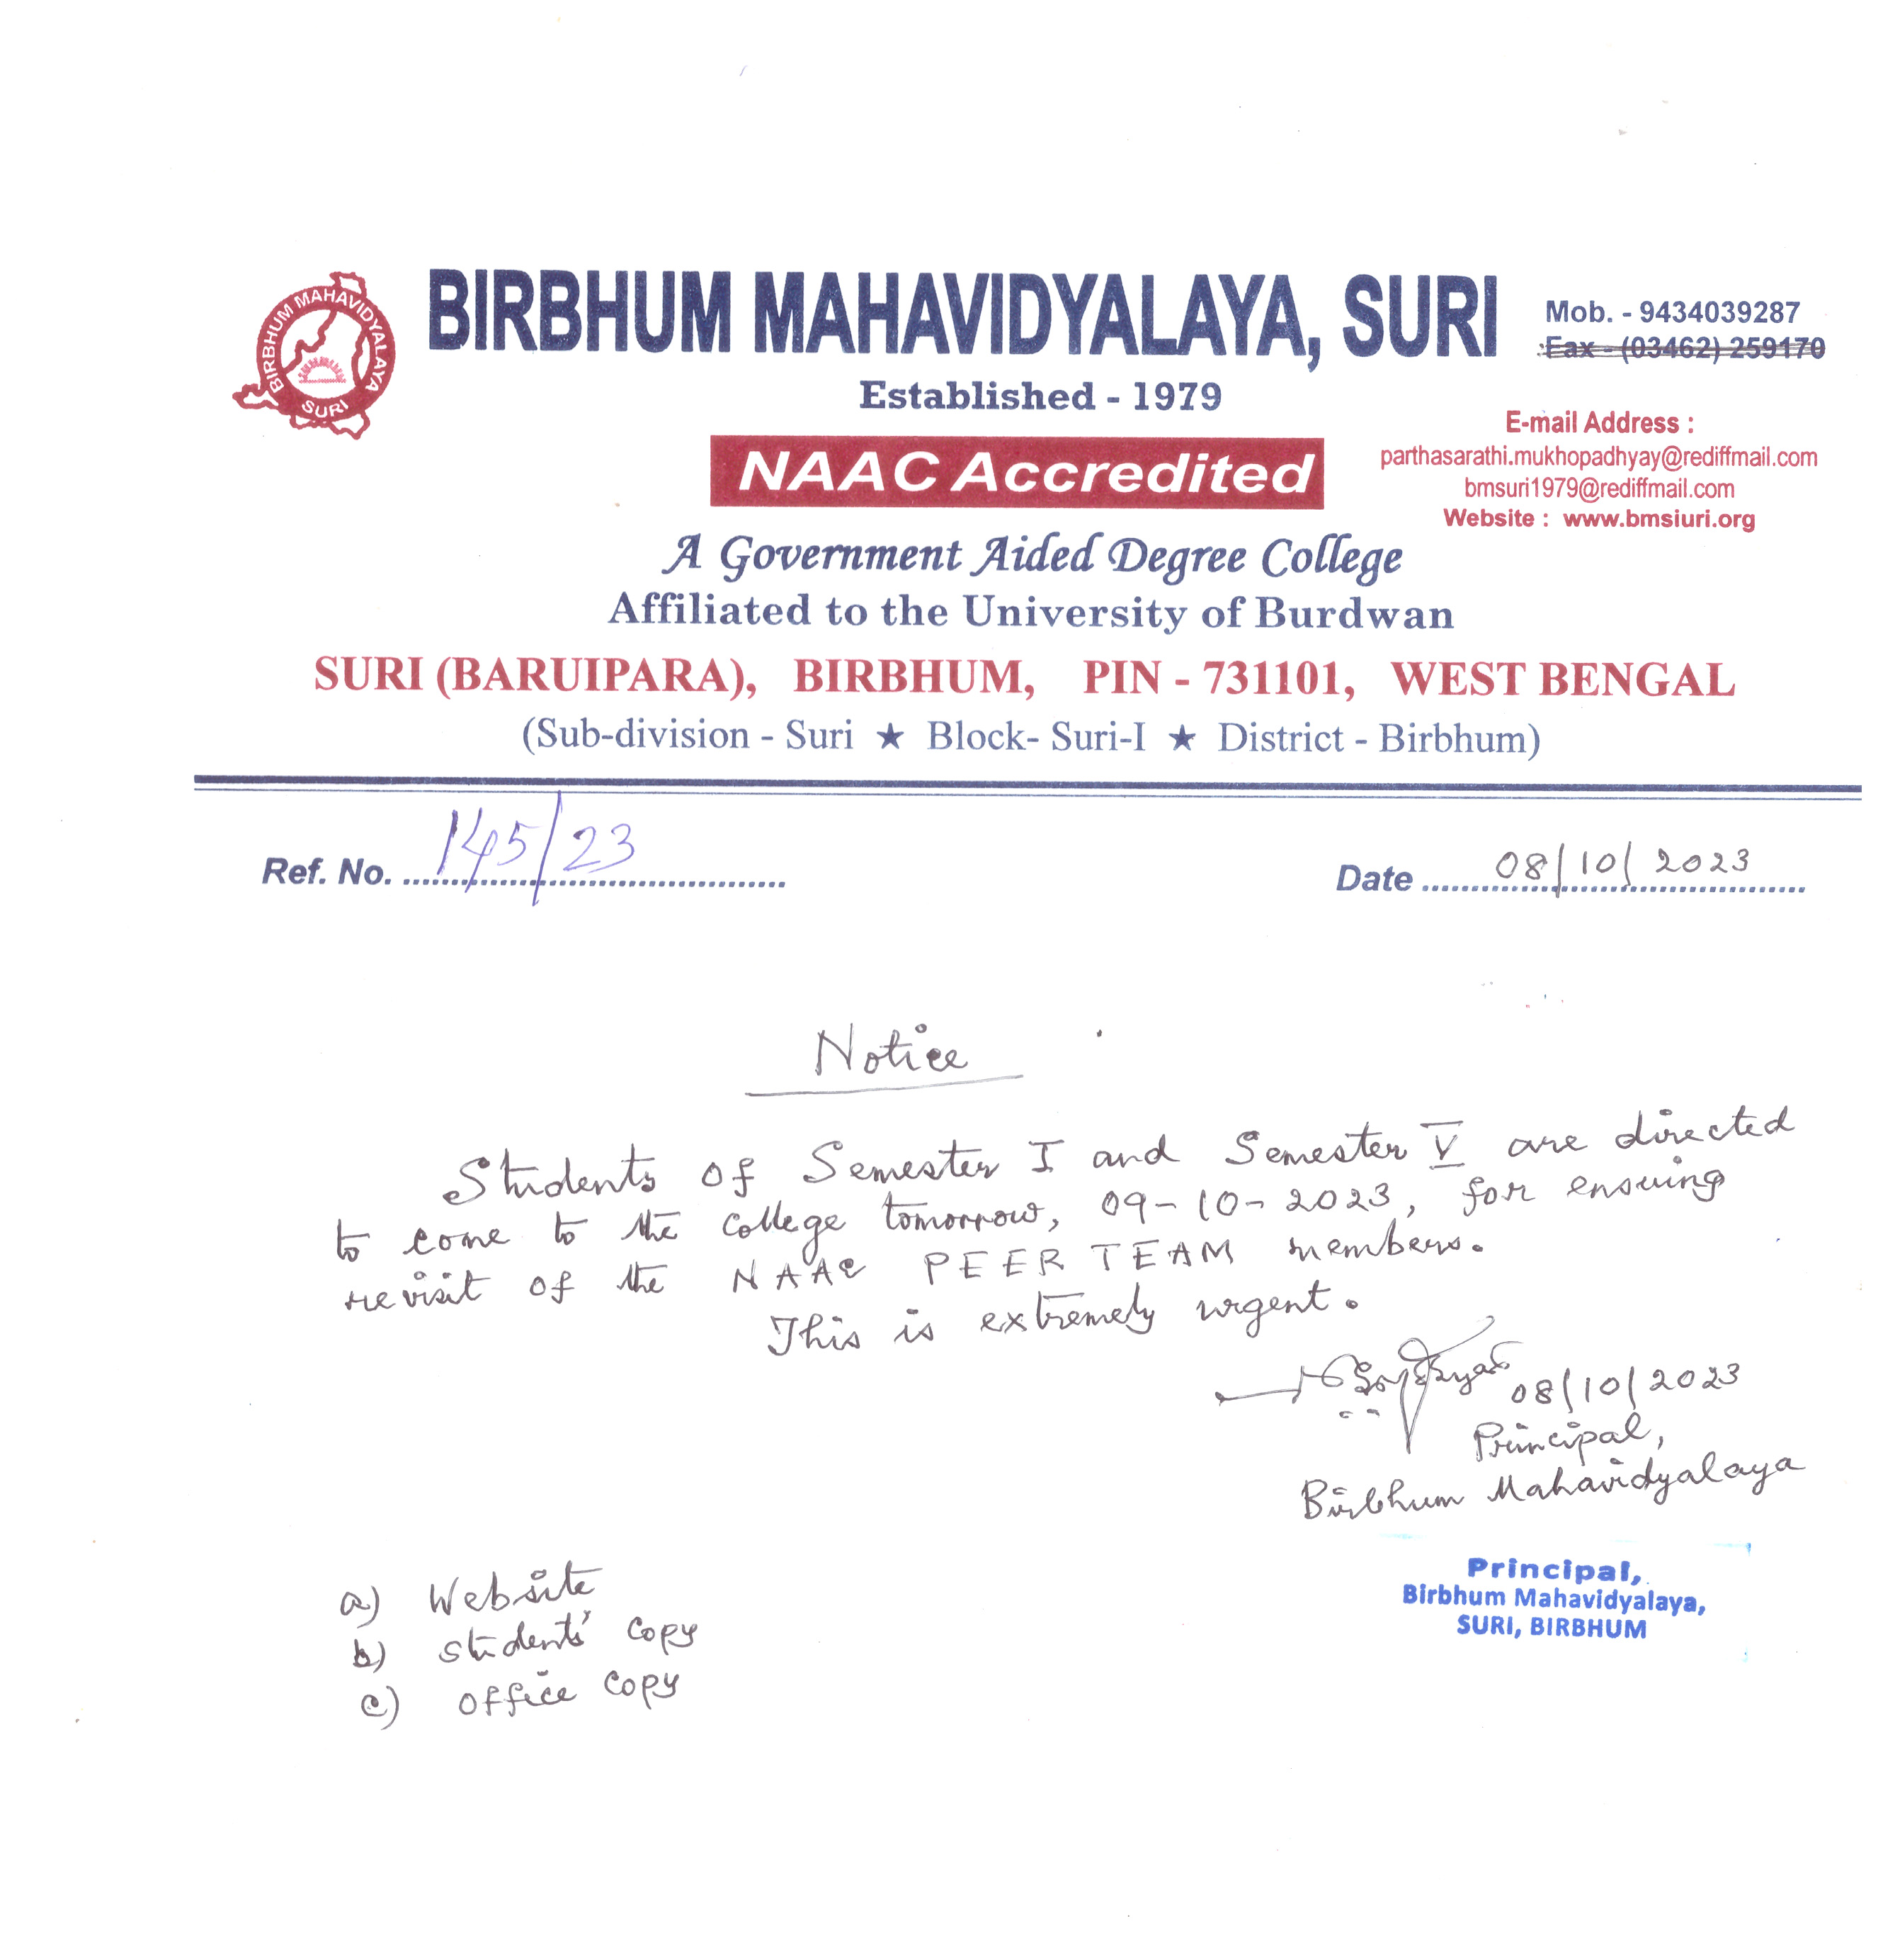 BIRBHUM MAHAVIDYALAYA
SURI
BIRBHUM MAHAVIDYALAYA, SURI
Mob. - 9434039287
Fax - (03462) 259170
Established - 1979
NAAC Accredited
E-mail Address :
parthasarathi.mukhopadhyay@rediffmail.com
bmsuri1979@rediffmail.com
Website : www.bmsiuri.org
A Government Aided Degree College
Affiliated to the University of Burdwan
SURI (BARUIPARA), BIRBHUM, PIN - 731101, WEST BENGAL
(Sub-division - Suri ★ Block- Suri-I ★ District - Birbhum)
Ref. No. 145/23
Date 08/10/2023
Notice
Students of Semester I and Semester V are directed
to come to the college tomorrow, 09-10-2023, for ensuing
revisit of the NAAC PEER TEAM members.
This is extremely urgent.
08/10/2023
Principal,
Birbhum Mahavidyalaya
Principal,
Birbhum Mahavidyalaya,
SURI, BIRBHUM
a) Website
b) Students' Copy
c) Office Copy